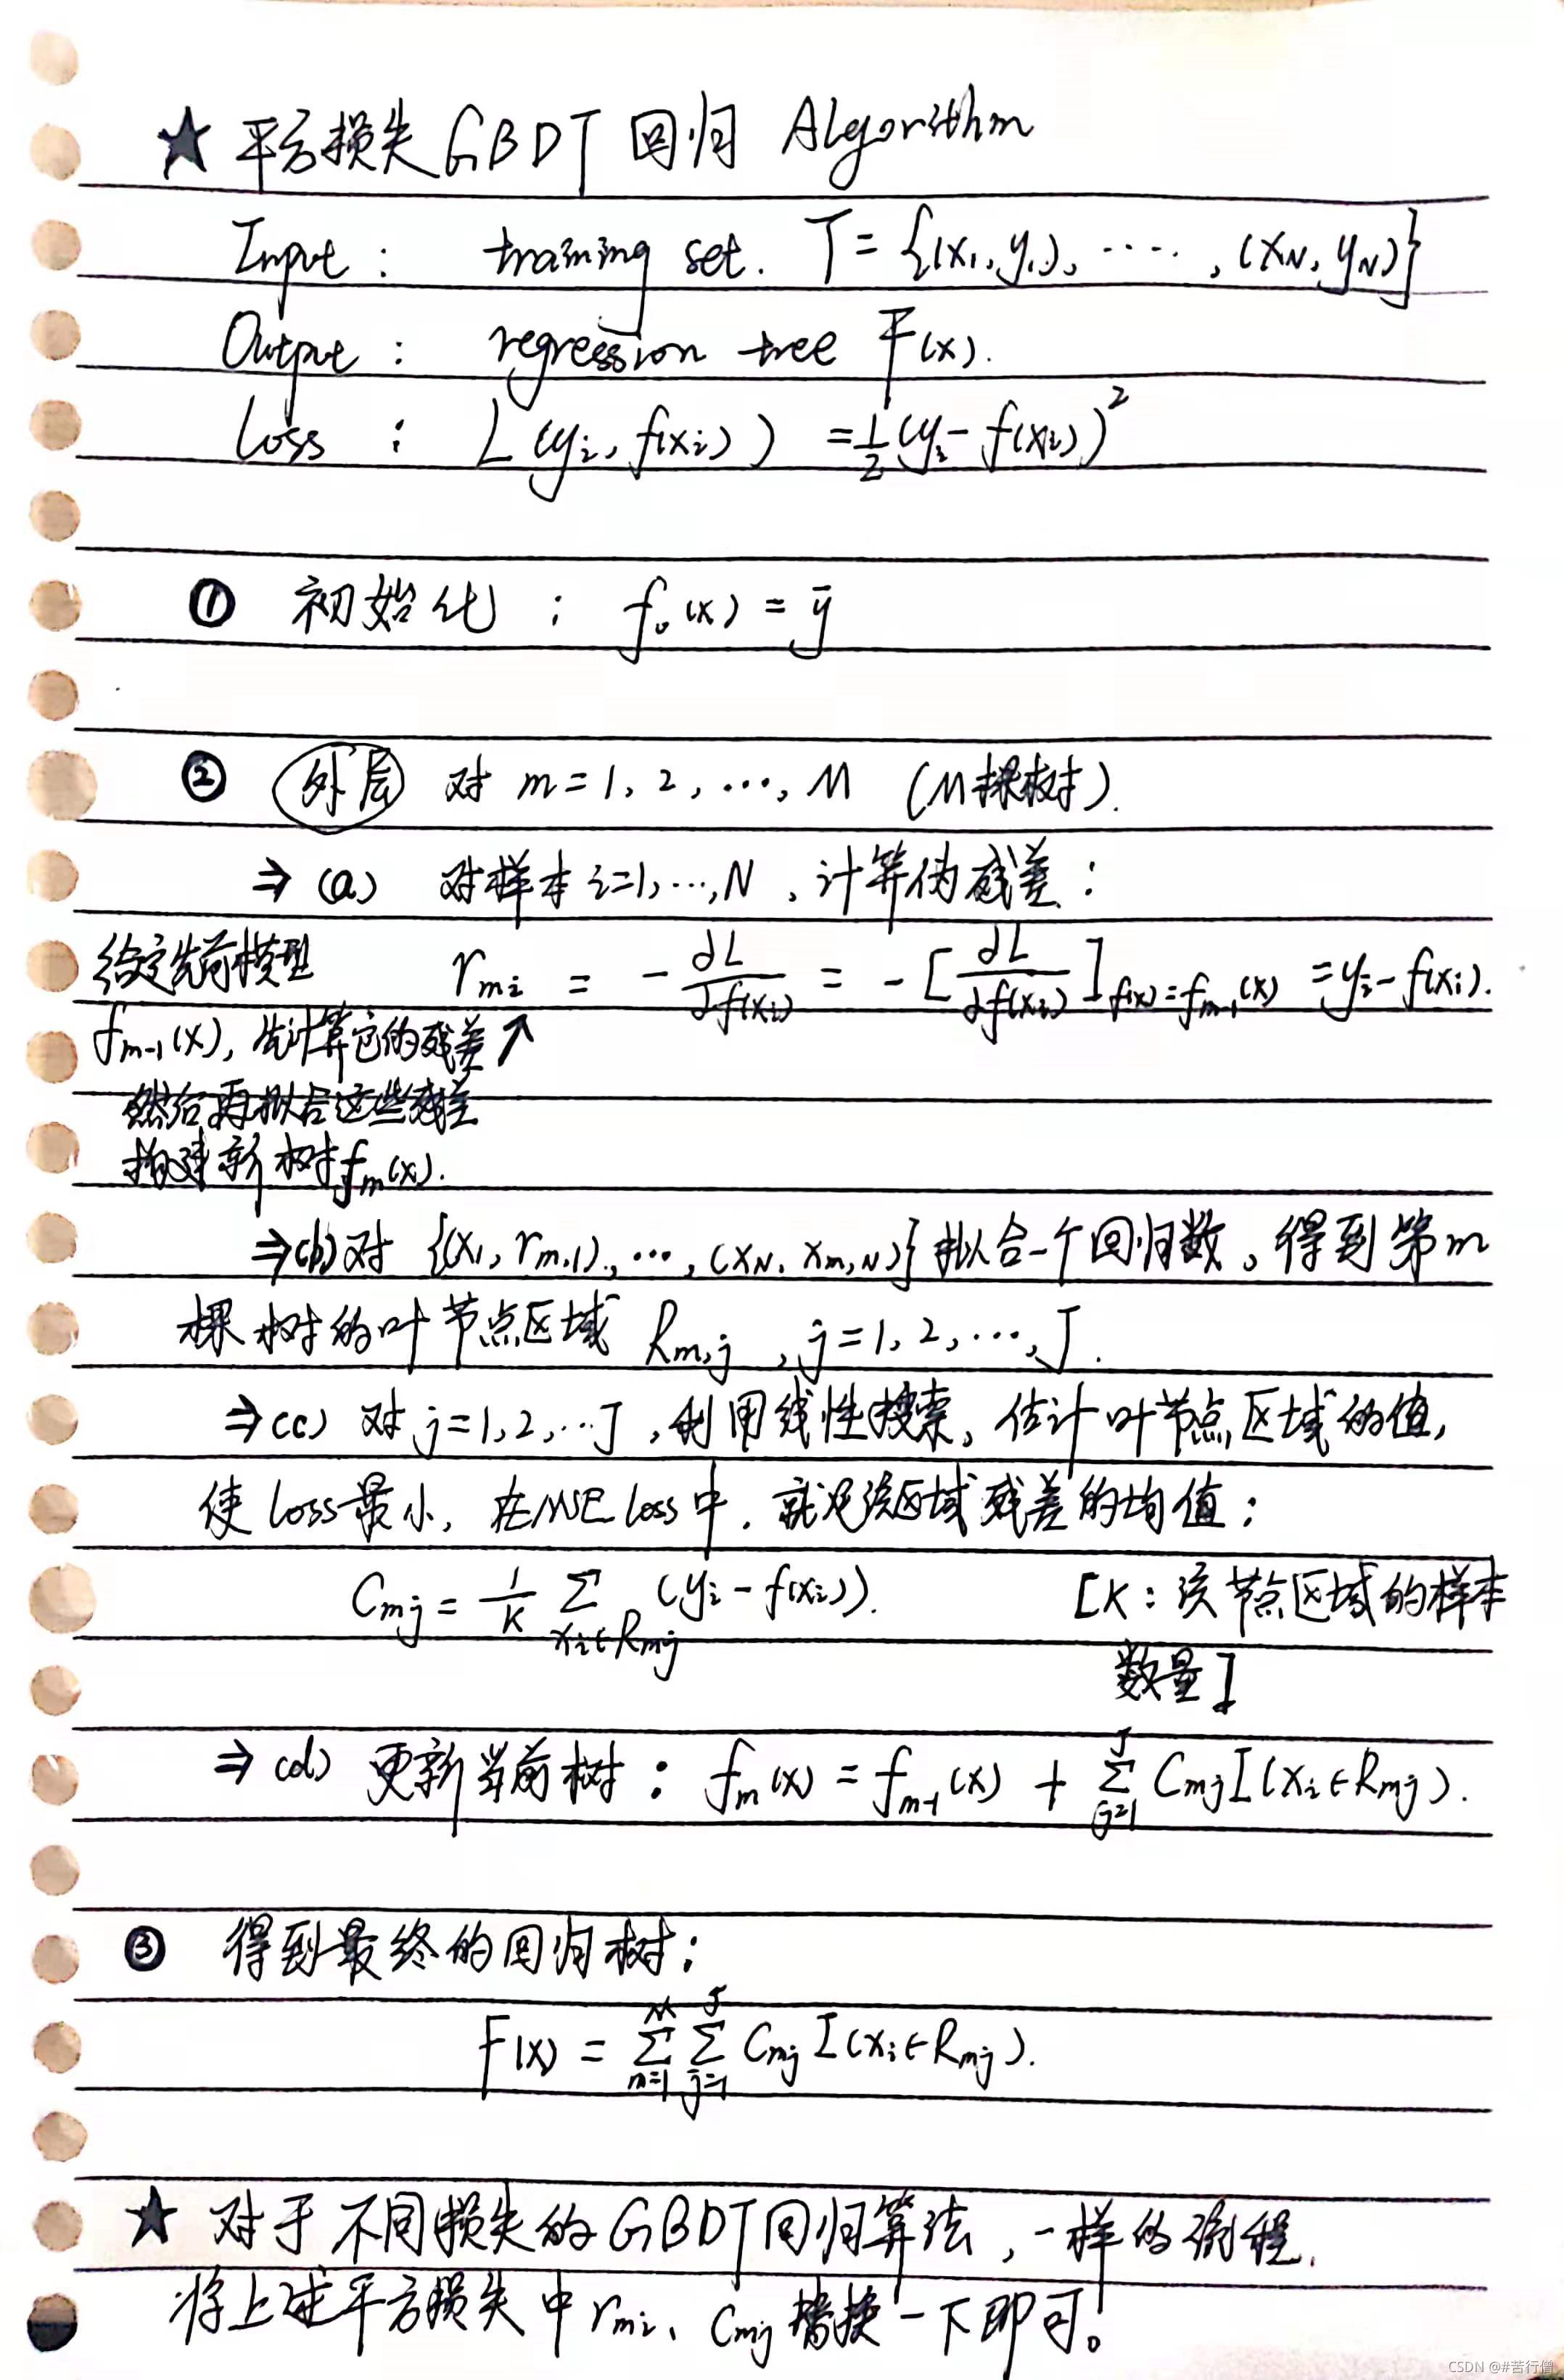 ★ 平方损失GBDT 回归 Algorithm
Input : training set. T = {(x₁, y₁), ····· , (x_N, y_N)}
Output : regression tree F(x).
Loss : L (y_i, f(x_i)) = 1/2 (y_i - f(x_i))²
① 初始化 : f₀(x) = ȳ
② 外层 对 m = 1, 2, ···, M (M棵树).
⇒ (a) 对样本 i=1,···,N , 计算伪残差 :
r_{mi} = - ∂L/∂f(x_i) = - [∂L/∂f(x_i)]_{f(x)=f_{m-1}(x)} = y_i - f(x_i).
给定先前模型
f_{m-1}(x), 先计算它的残差↗
然后再拟合这些残差
构建新树f_m(x).
⇒(b) 对 {(x₁, r_{m,1}), ···, (x_N, x_{m,N})} 拟合一个回归数。得到第m
棵树的叶节点区域 R_{m,j} , j=1, 2, ···, J.
⇒(c) 对 j=1,2,···J , 利用线性搜索, 估计叶节点区域的值,
使 Loss 最小, 在MSE Loss中, 就是该区域残差的均值 :
C_{mj} = 1/K Σ_{x_i∈R_{mj}} (y_i - f(x_i)). [K : 该节点区域的样本
数量]
⇒ (d) 更新当前树 : f_m(x) = f_{m-1}(x) + Σ_{j=1}^{J} C_{mj} I(x_i∈R_{mj}).
③ 得到最终的回归树 :
F(x) = Σ_{m=1}^{M} Σ_{j=1}^{J} C_{mj} I(x_i∈R_{mj}).
★ 对于不同损失的GBDT回归算法, 一样的流程.
将上述平方损失中 r_{mi}、C_{mj} 替换一下即可。
CSDN @#苦行僧